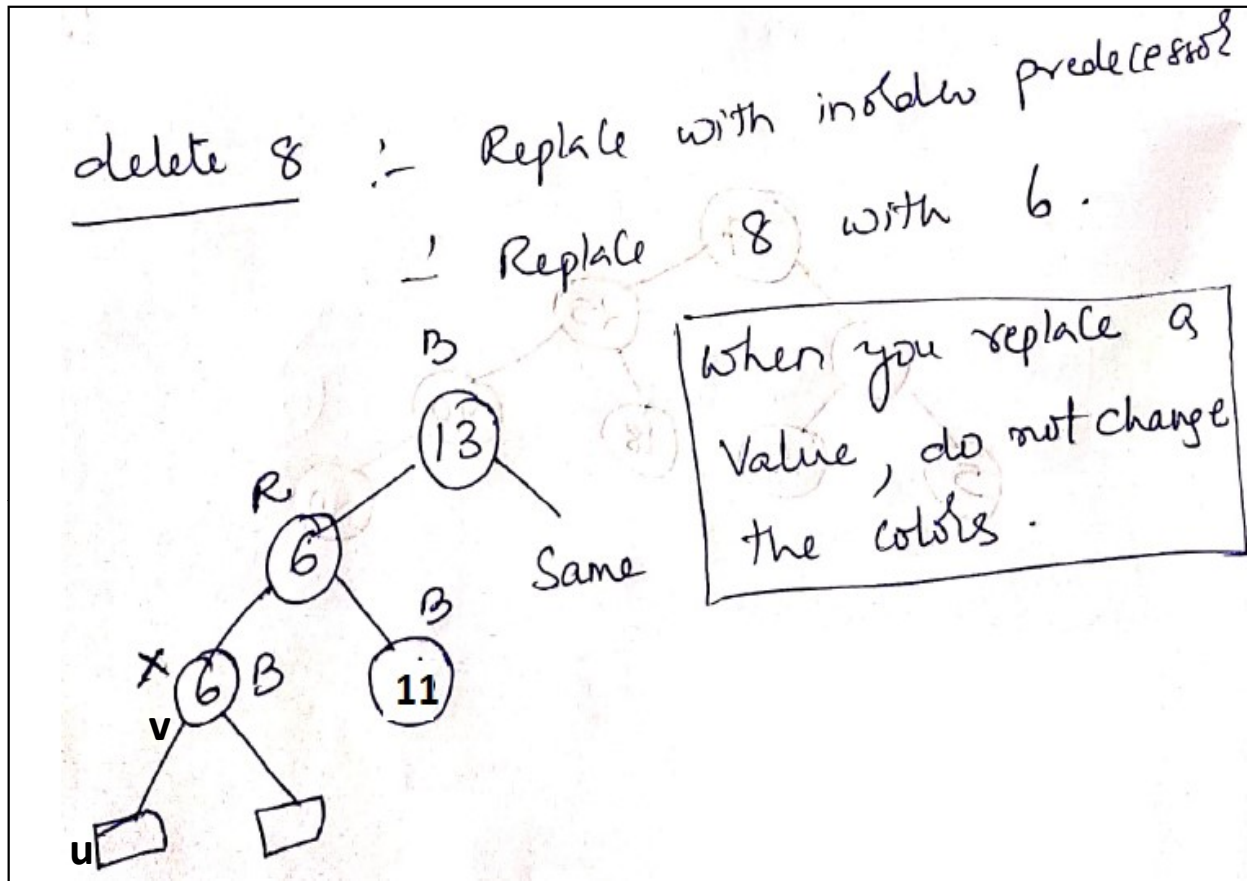 delete 8 :- Replace with inorder predecessor
:- Replace 8 with 6.
When you replace a
Value, do not change
the colors.
B
13
R
6
Same
B
X 6 B
11
v
u